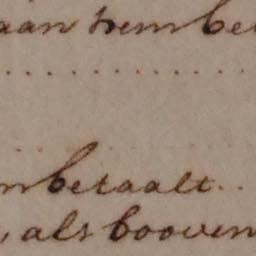 aan hem be
mbetaalt..
, als booven